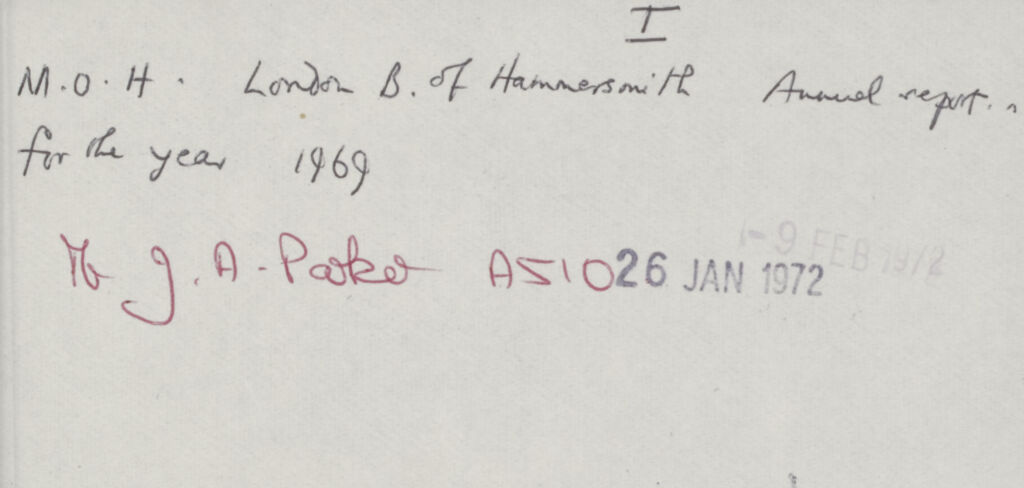 I
M.O.H. London B. of Hammersmith Annual report..
for the year 1969
Mr J. A. Parker A510 26 JAN 1972
1-9 FEB 1972